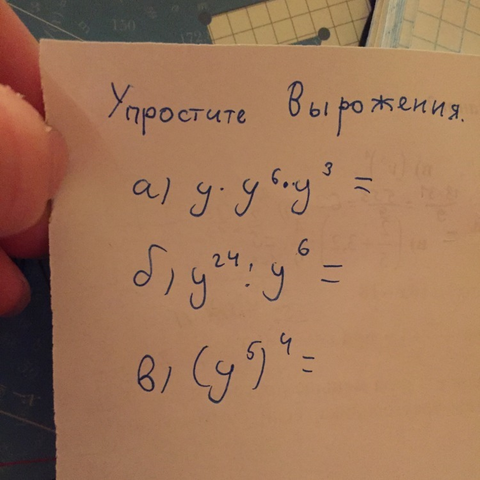 Упростите Вырожения.
а) y · y⁶ · y³ =
б) y²⁴ : y⁶ =
в) (y⁵)⁴ =